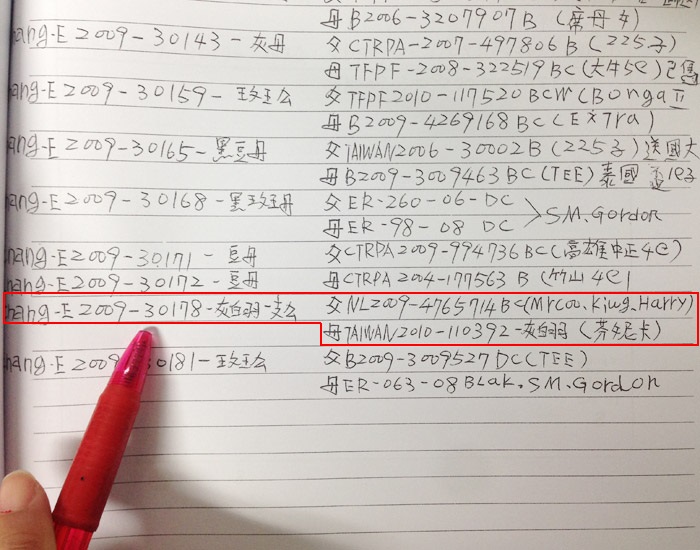 母B2006-3207907B (席母女)
hang-E 2009-30143-灰母 父CTRPA-2007-497806B (225子)
母TFPF-2008-322519BC(大牛5e)已
hang-E 2009-30159-玟公 父TFPF2010-117520BCW(Bonga II
母B2009-4269168BC(Extra)
ang-E 2009-30165-黑豆母 父TAIWAN2006-30002B(225子)送國大
母B2009-3009463BC(TEE)泰國
ang-E 2009-30168-黑玟母 父ER-260-06-DC
母ER-98-08 DC >S.M.Gordon
hang-E 2009-30171-豆母 父CTRPA2009-994736BC(高雄中正4e)
hang-E 2009-30172-豆母 母CTRPA 2004-177563B (竹山4e)
hang-E 2009-30178-灰白羽-玄公 父NL2009-4765714BC(Mrcoo.Kiug.Harry)
母TAIWAN2010-110392-灰白羽 (芬妮卡)
hang-E 2009-30181-玟公 父B2009-3009527DC(TEE)
母ER-063-08Blak.S.M.Gordon